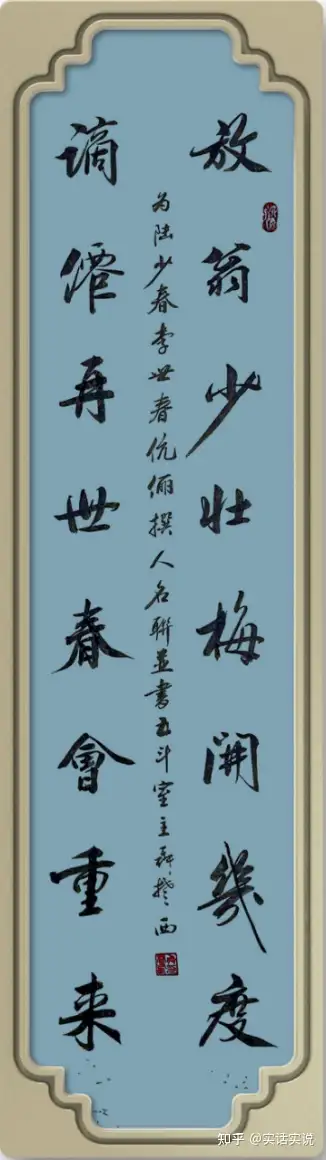 放翁少壮梅開幾度
为陆少春李世春伉俪撰人名聯並書五斗室主
西
谪僊再世春會重来
知乎 @实话实说